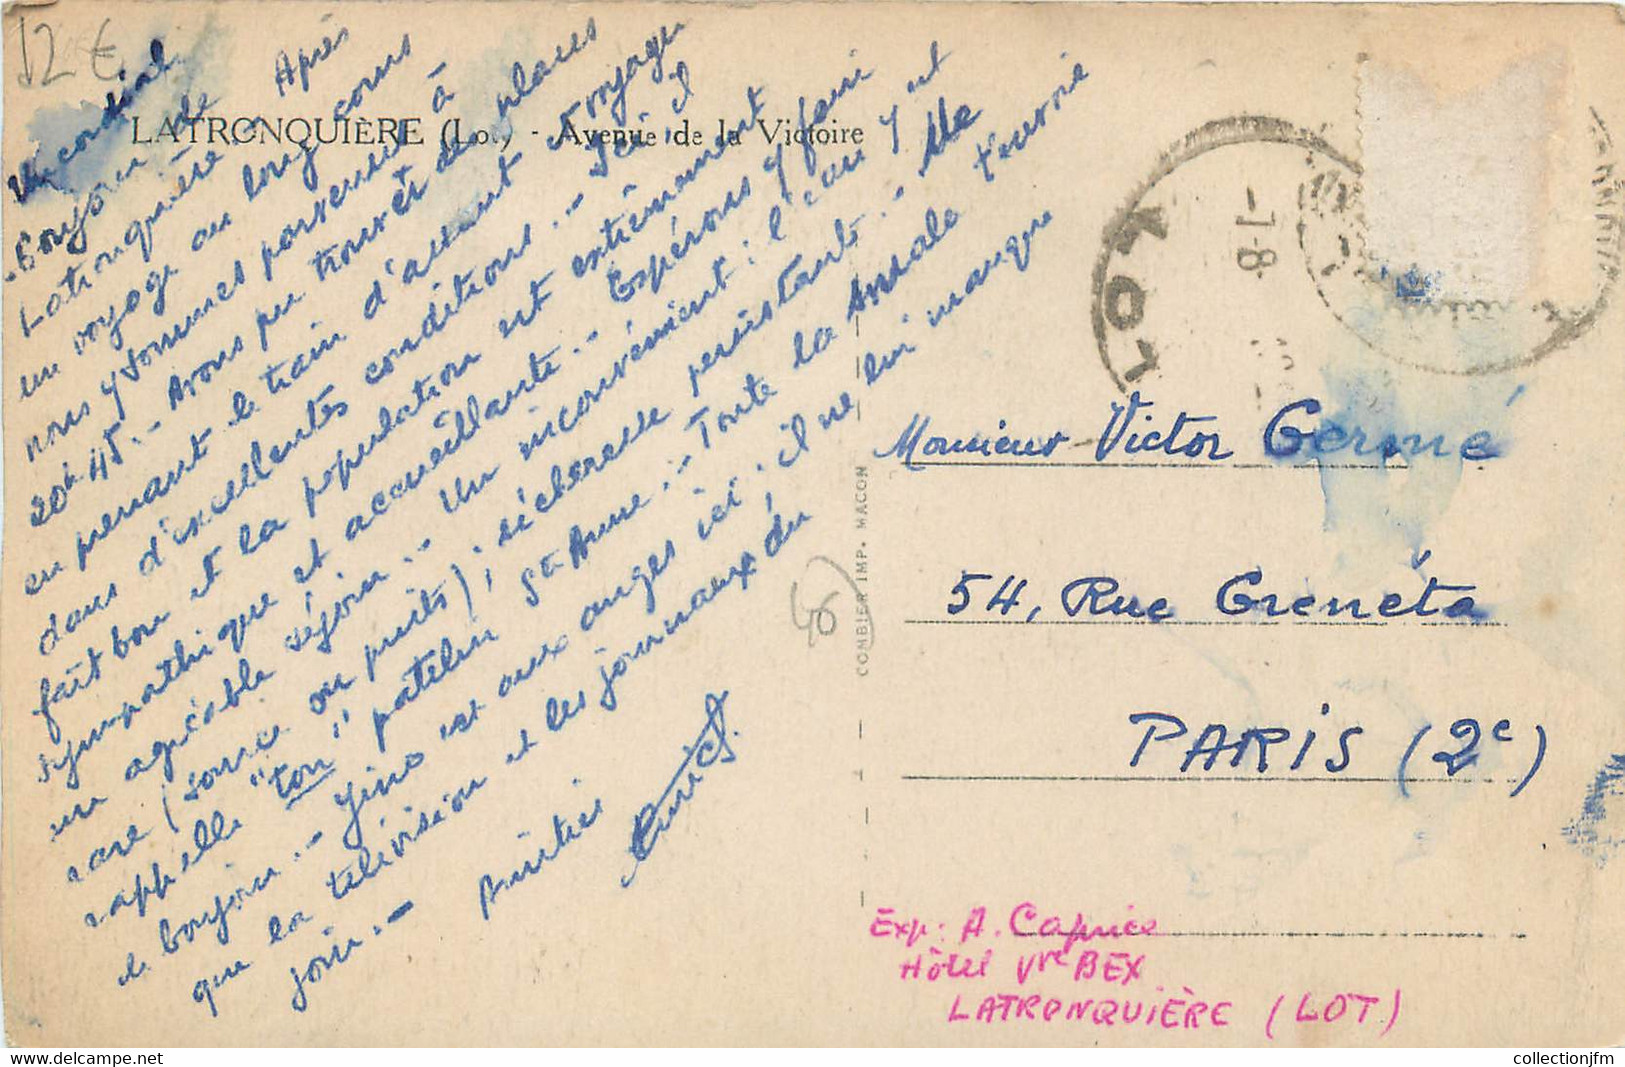 12€
LATRONQUIÈRE (Lot) - Avenue de la Victoire
Un cordial
bonjour de
Latronquière. - Après
un voyage au long cours
nous y sommes parvenus à
20h45. - Avons pu trouver des places
en prenant le train d'avant et voyagé
dans d'excellentes conditions. - Ici, il
fait bon et la population est extrêmement
sympathique et accueillante. - Espérons y faire
un agréable séjour. - Un inconvénient : l'eau y est
rare (source ou puits) ; sécheresse persistante. - Me
rappelle "ton" patelin Ste Anne. - Toute la smala t'envoie
le bonjour. - est aux anges ici : il ne lui manque
que la télévision et les journaux du
jour. - Amitiés
Monsieur Victor Germé
54, Rue Greneta
PARIS (2e)
COMBIER IMP. MACON
LOT
-1-8
Exp: A. Caprice
Hôtel Vve BEX
LATRONQUIÈRE (LOT)
collectionjfm